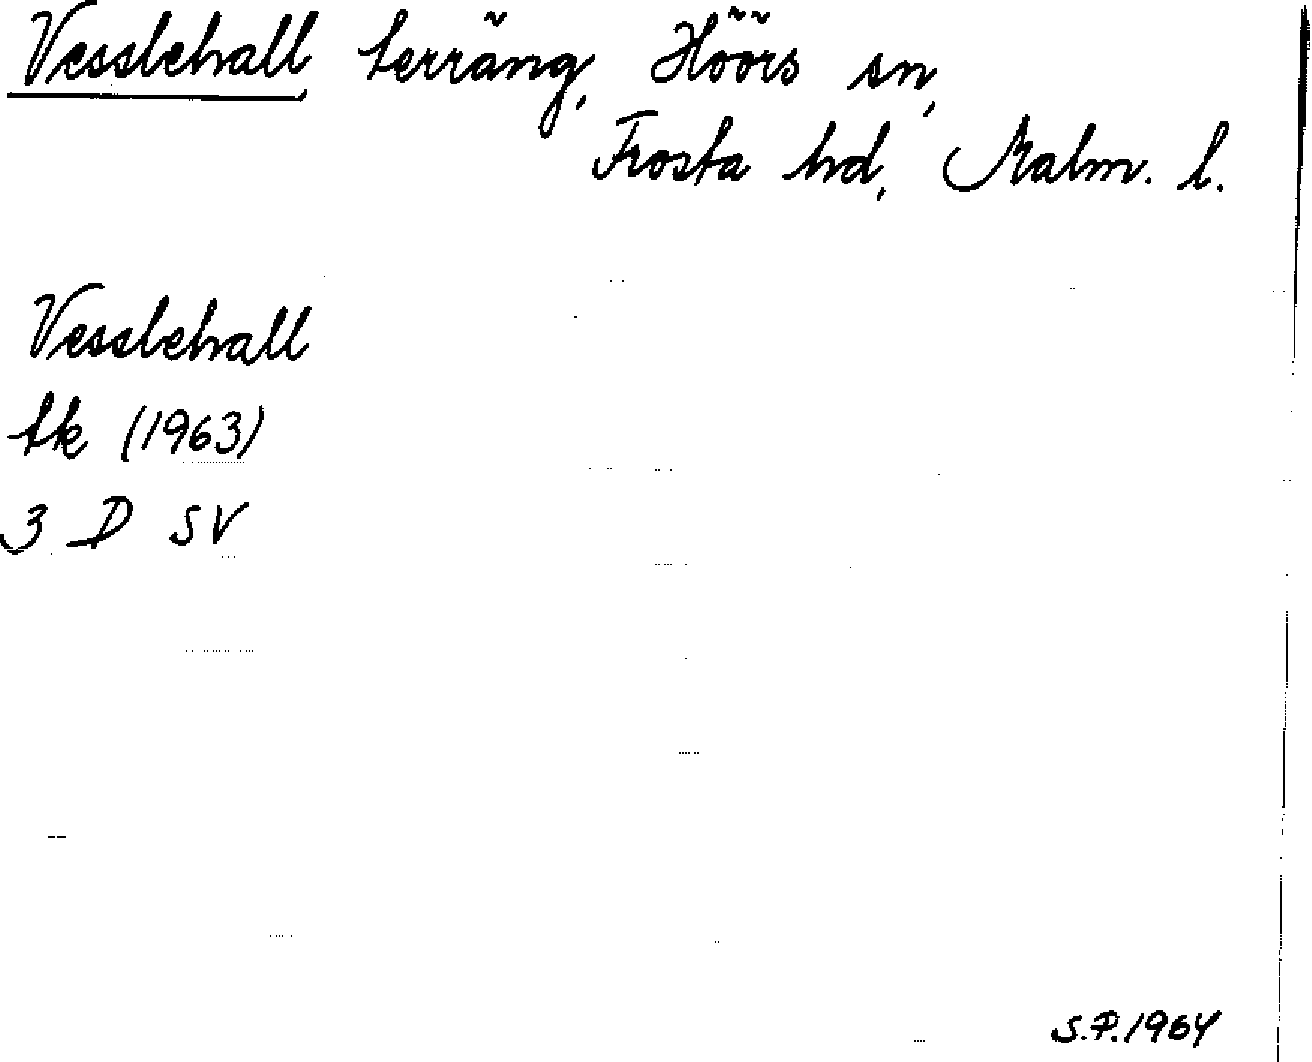 Vesslehall terräng, Höörs sn,
Frosta hd, Malm. l.
Vesslehall
tk (1963)
3 D SV
S.P. 1964